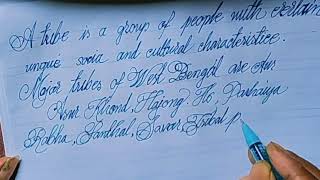 A tribe is a group of people with certain
unque socia and cultural characteristice.
Major tribes of West Bengal are
Asur, Khond, Hajong, Ho, Parhaiya
Rabha, Santhal, Savar,